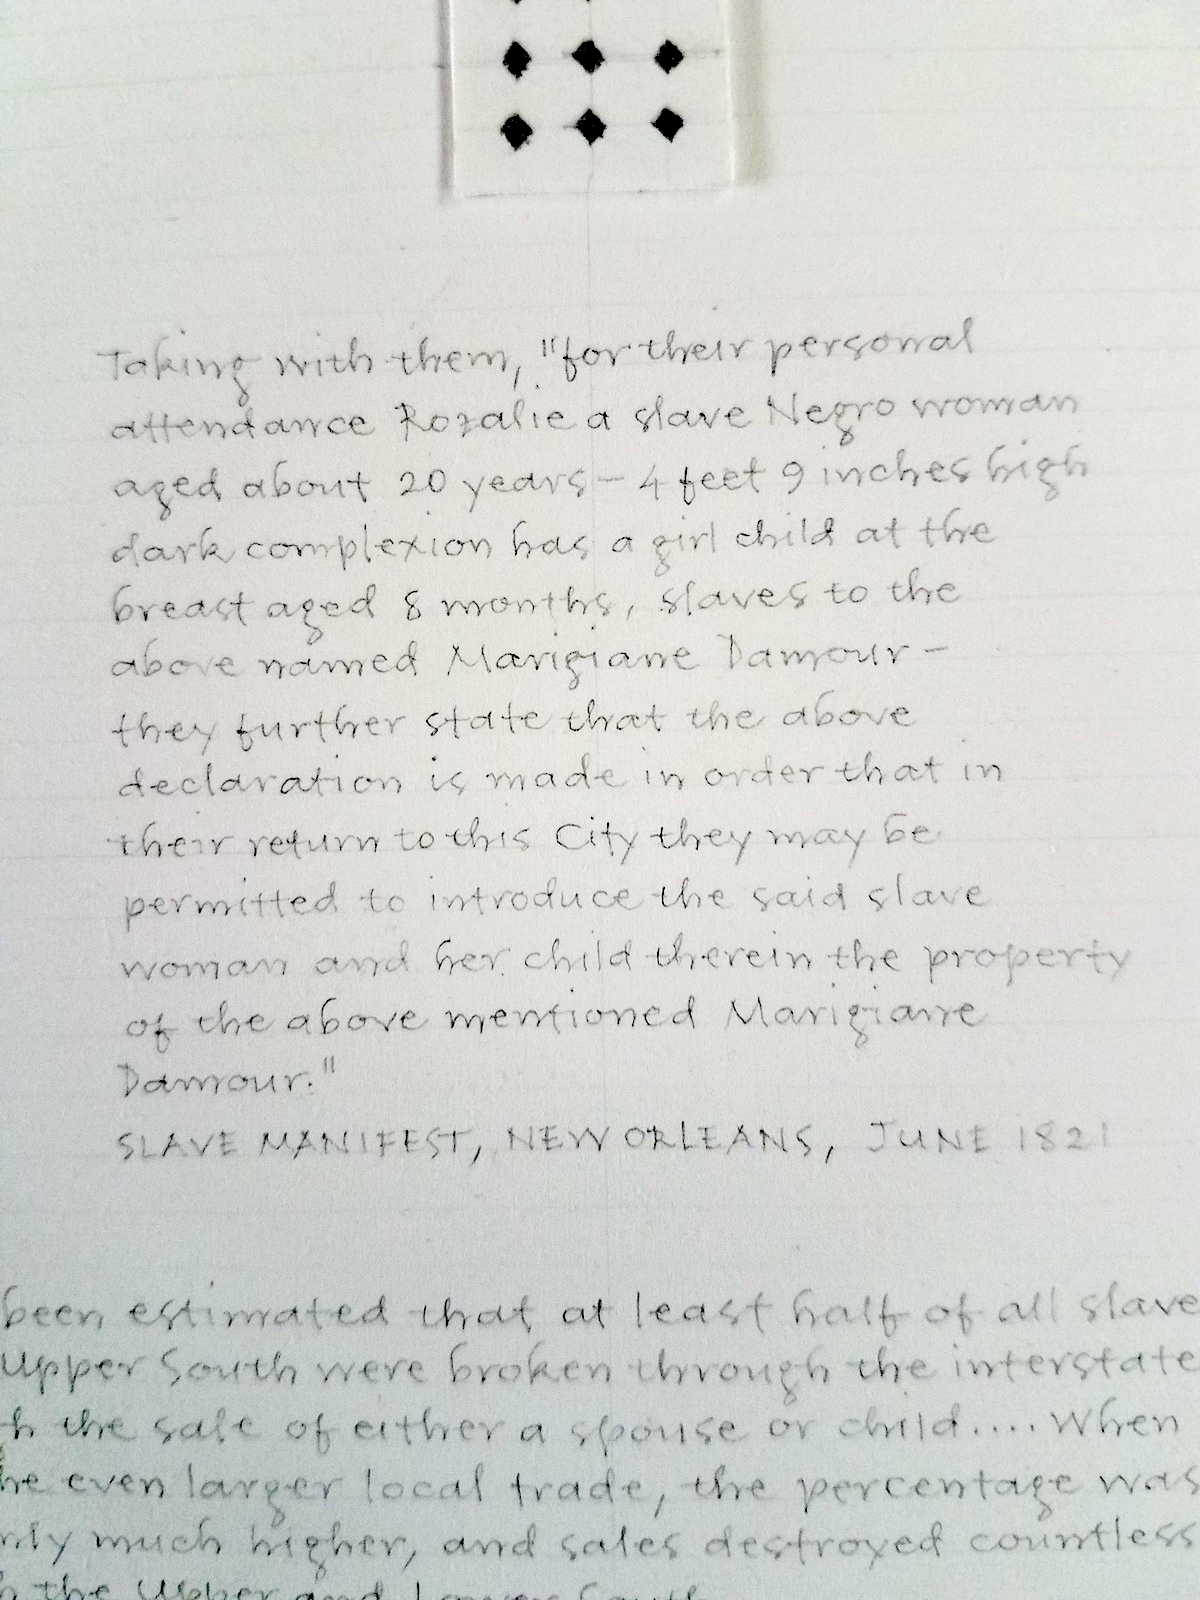 Taking with them, "for their personal
attendance Rozalie a slave Negro woman
aged about 20 years – 4 feet 9 inches high
dark complexion has a girl child at the
breast aged 8 months, slaves to the
above named Marigiane Damour –
they further state that the above
declaration is made in order that in
their return to this City they may be
permitted to introduce the said slave
woman and her child therein the property
of the above mentioned Marigiane
Damour."
SLAVE MANIFEST, NEW ORLEANS, JUNE 1821
been estimated that at least half of all slave
Upper South were broken through the interstate
h the sale of either a spouse or child.... When
he even larger local trade, the percentage was
nly much higher, and sales destroyed countless
the Upper and Lower South